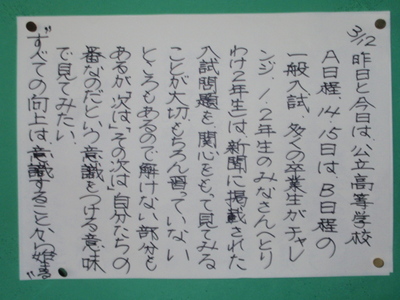 3/12 昨日と今日は、公立高等学校
A日程、14、15日は、B日程の
一般入試。多くの卒業生がチャレ
ンジ。1、2年生のみなさん(とりら
わけ2年生)は新聞に掲載された
入試問題を、関心をもって見てみる
ことが大切。もちろん習っていない
ところもあるので解けない部分も
あるが、「次は」「その次は」自分たちの
番なのだという意識をつける意味
で見てみたい。
"すべての向上は意識することから始まる"